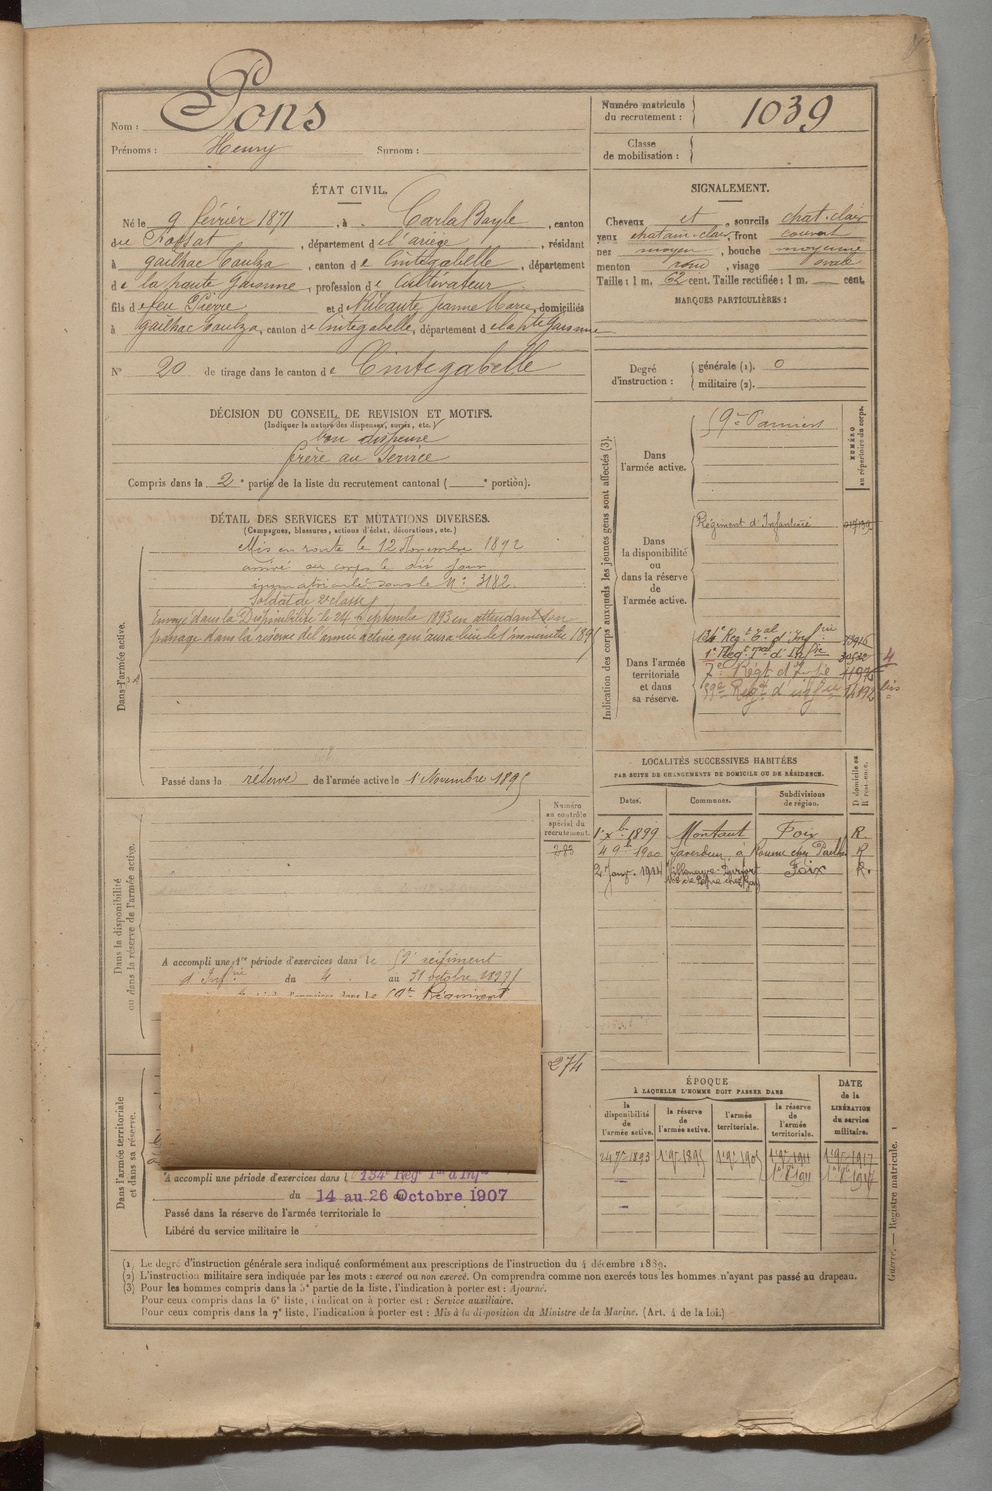 Nom : Pons
Prénoms : Henry Surnom :
Numéro matricule du recrutement : 1039
Classe de mobilisation :
ÉTAT CIVIL.
Né le 9 février 1871, à Carla Bayle, canton
de Fossat, département de l'ariège, résidant
à gailhac Toulza, canton de Cintegabelle, département
de la haute Garonne, profession de Cultivateur
fils de feu Pierre et de Jeanne Marie, domiciliés
à gailhac Toulza, canton de Cintegabelle, département d
N° 20 de tirage dans le canton de Cintegabelle
SIGNALEMENT.
Cheveux et, sourcils chat-clair
yeux chatain-clair, front couvert
nez moyen, bouche moyenne
menton rond, visage ovale
Taille : 1 m. 62 cent. Taille rectifiée : 1 m. cent.
MARQUES PARTICULIÈRES :
Degré d'instruction :
générale (1). 0
militaire (2).
DÉCISION DU CONSEIL DE REVISION ET MOTIFS.
(Indiquer la nature des dispenses, sursis, etc.)
bon dispensé
frère au Service
Compris dans la 2e partie de la liste du recrutement cantonal ( e portion).
DÉTAIL DES SERVICES ET MUTATIONS DIVERSES.
(Campagnes, blessures, actions d'éclat, décorations, etc.)
Dans l'armée active.
Mis en route le 12 Novembre 1892
arrivé au corps le dit jour
immatriculé sous le N° 3182
Soldat de 2e classe
Envoyé dans la Disponibilité le 24 septembre 1893 en attendant son
passage dans la réserve de l'armée active qui aura lieu le 1er novembre 1895
Passé dans la réserve de l'armée active le 1 Novembre 1895
Indication des corps auxquels les jeunes gens sont affectés (3).
NUMÉRO au répertoire du corps.
Dans l'armée active.
59e Pamiers
Dans la disponibilité ou dans la réserve de l'armée active.
Régiment d'Infanterie
Dans l'armée territoriale et dans sa réserve.
134e Regt Tal d'Infrie
1er Regt Tal d'Infie
7e Régt d'Infie
59e Regt d'infrie
4
bis
LOCALITÉS SUCCESSIVES HABITÉES
PAR SUITE DE CHANGEMENTS DE DOMICILE OU DE RÉSIDENCE.
Dates. Communes. Subdivisions de région. D domicile ou R résidence.
1er Xbre 1899 Montaut Foix R
4 9bre 1900 Saverdun R
2 Janv. 1914 Foix R.
Dans la disponibilité ou dans la réserve de l'armée active.
Numéro au contrôle spécial du recrutement.
283
A accompli une 1re période d'exercices dans le 59e régiment
d'Infrie du 4 au 31 octobre 1897
59e Régiment
274
Dans l'armée territoriale et dans sa réserve.
A accompli une période d'exercices dans l 134e Regt Tal d'Infie
du 14 au 26 Octobre 1907
Passé dans la réserve de l'armée territoriale le
Libéré du service militaire le
ÉPOQUE
À LAQUELLE L'HOMME DOIT PASSER DANS
la disponibilité de l'armée active. la réserve de l'armée active. l'armée territoriale. la réserve de l'armée territoriale. DATE de la LIBÉRATION du service militaire.
24 7bre 1893 1er 9bre 1895 1er 9bre 1905 1er 9bre 1911 1er 9bre 1917
(1) Le degré d'instruction générale sera indiqué conformément aux prescriptions de l'instruction du 4 décembre 1889.
(2) L'instruction militaire sera indiquée par les mots : exercé ou non exercé. On comprendra comme non exercés tous les hommes n'ayant pas passé au drapeau.
(3) Pour les hommes compris dans la 5e partie de la liste, l'indication à porter est : Ajourné.
Pour ceux compris dans la 6e liste, l'indication à porter est : Service auxiliaire.
Pour ceux compris dans la 7e liste, l'indication à porter est : Mis à la disposition du Ministre de la Marine. (Art. 4 de la loi.)
Guerre. — Registre matricule. 1